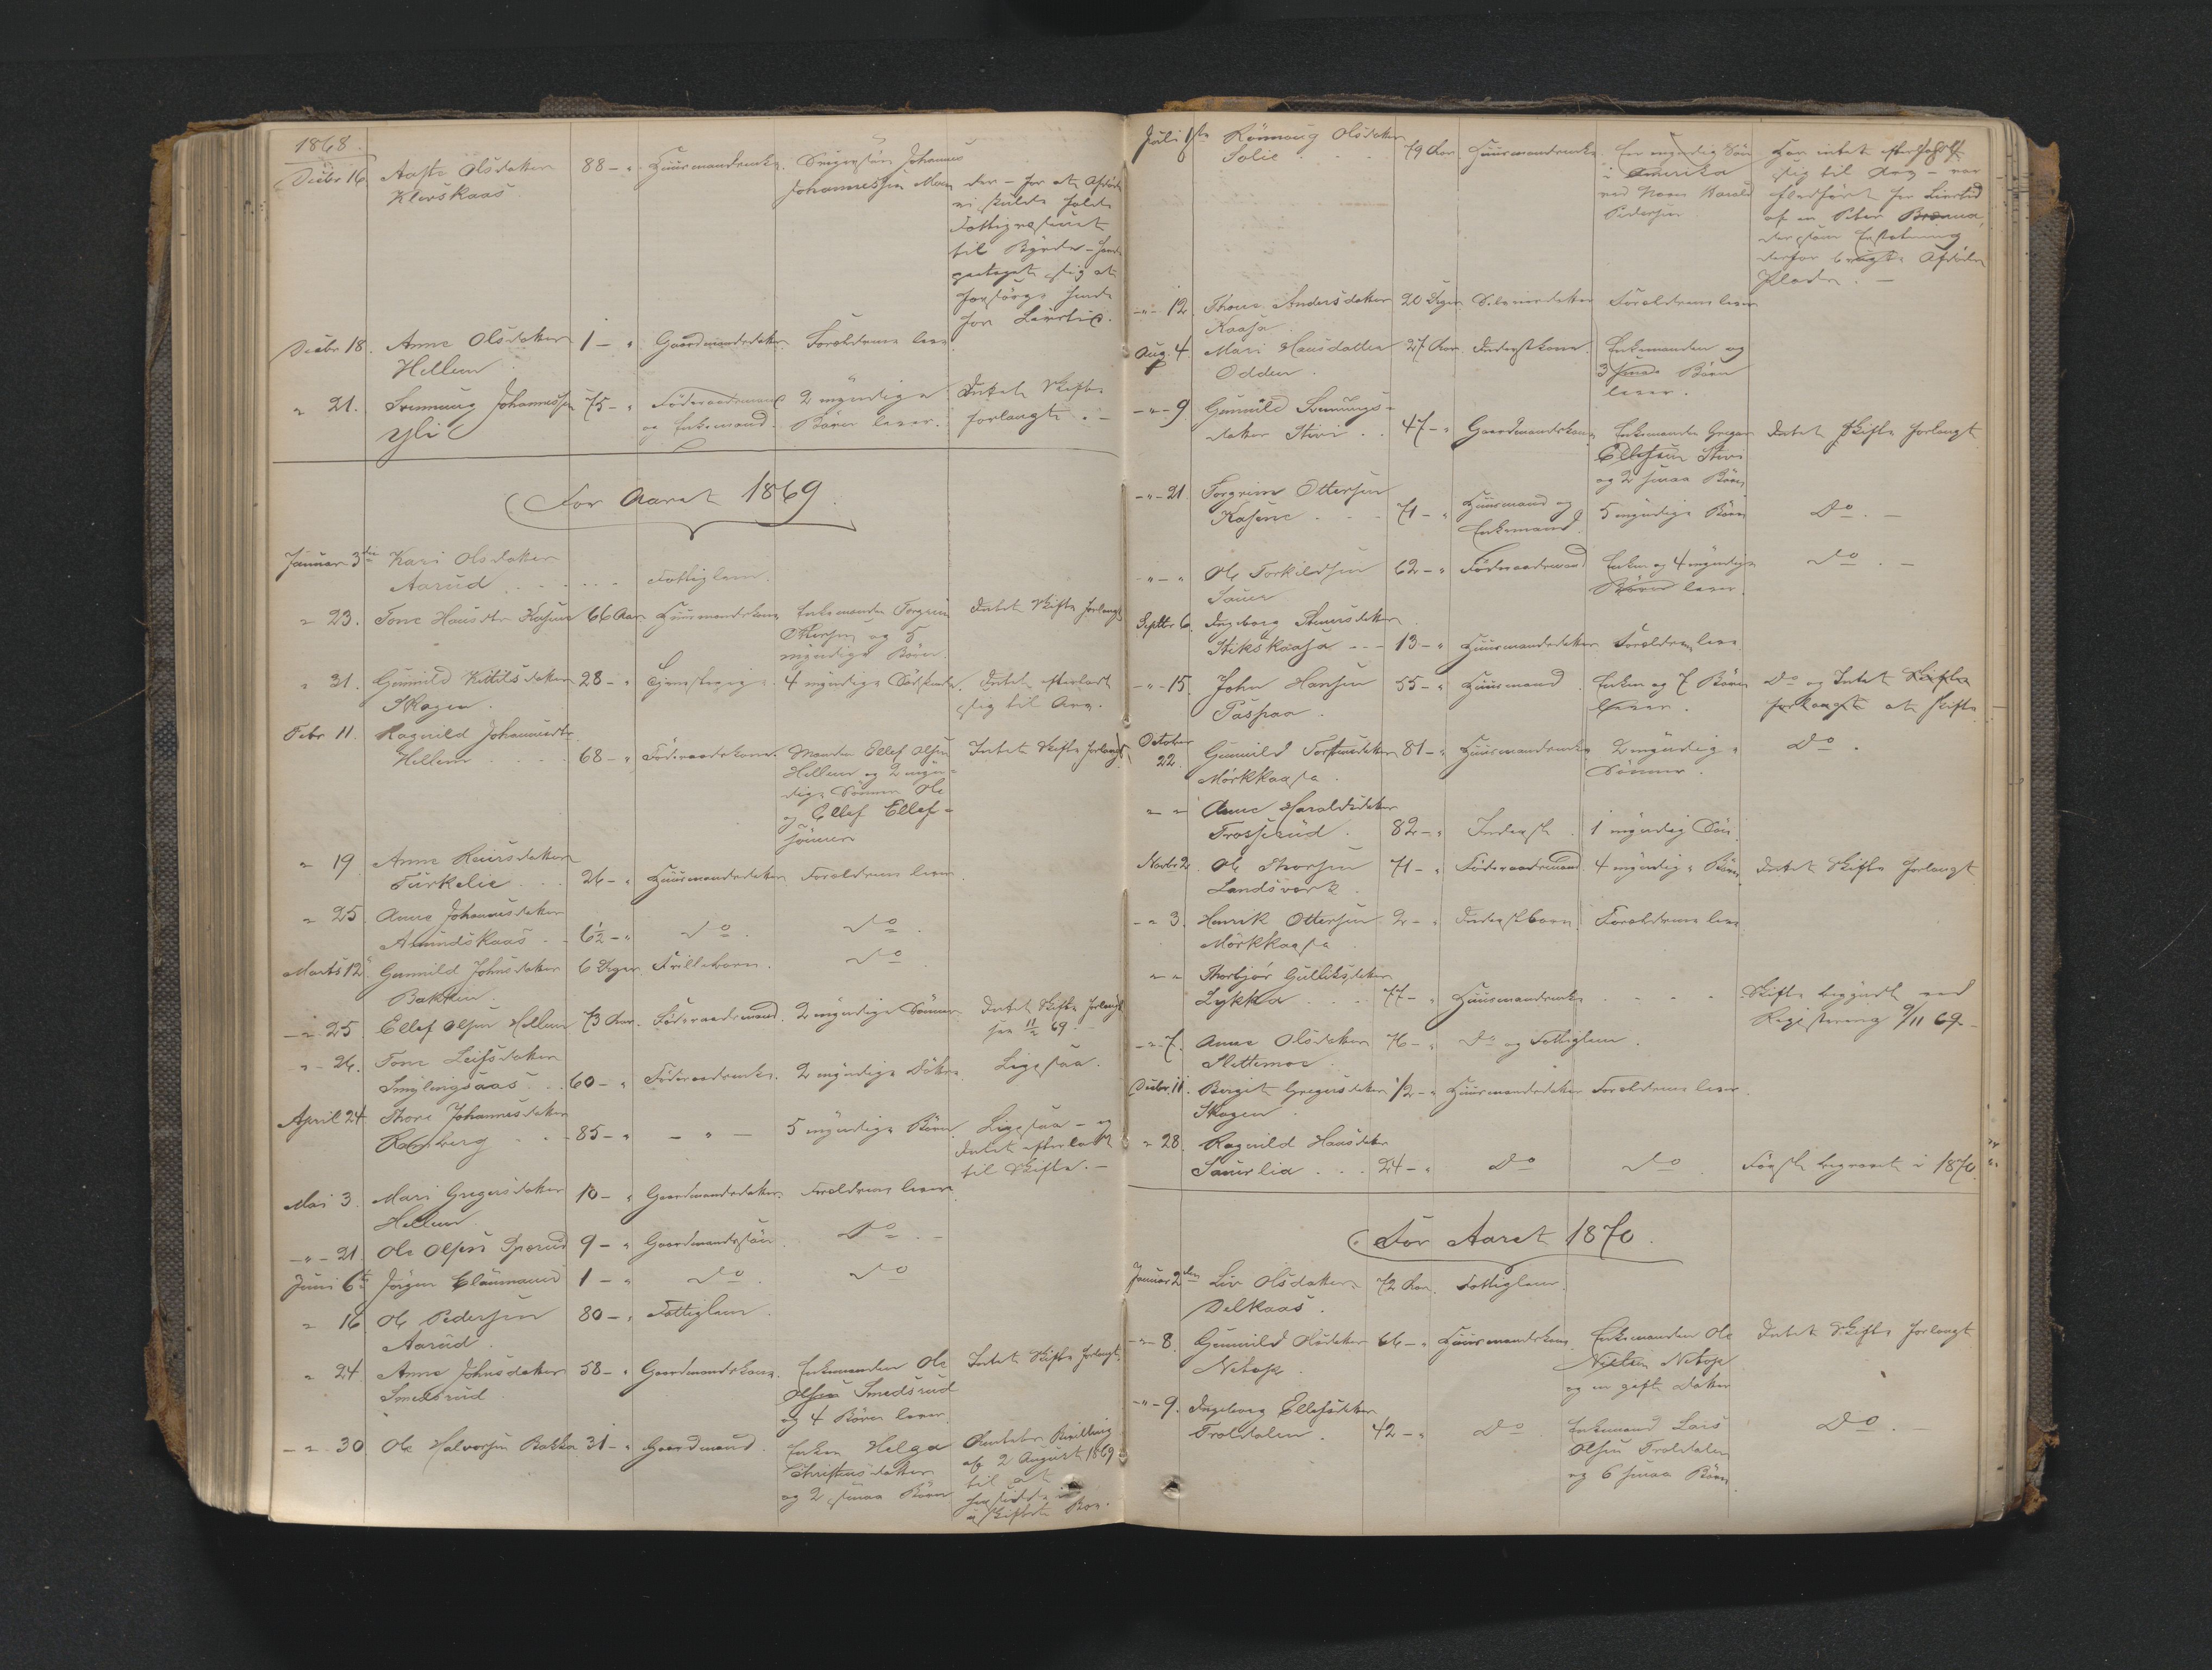 1868.
Decbr 16. Aaste Olsdatter 88 - " Huusmandsenke. Svigersøn Johannes
Klevskaas Johannessen Moen der - for at Afdøde
ei skulde falde
Fattigvæsenet
til Byrde - havde
paataget sig at
forsørge hende
for Livstid.
Decbr 18. Anne Olsdatter 1 - " Gaardmandsdatter. Forældrene lever
Hellem
" 21. Svennung Johannessen 75 - " Føderaadsmand 2 myndige Intet Skifte
Yli og Enkemand. Børn lever. forlangte. -
For Aaret 1869.
Januar 3die Kari Olsdatter
Aarud . . . . . . Fattiglem.
" 23. Tone Hansdtr Kasene 66 Aar Huusmandskone Enkemanden Torgrim Intet Skifte forlangt
Ottersen og 5
myndige Børn.
" 31. Gunnild Kittilsdatter 28 - " Tjenestepige. 4 myndige Sødskende. Intet efterladt
Skogen. sig til Arv.
Febr 11. Ragnild Johannesdtr
Hellem . . . . 68 - " Føderaadskone. Manden Ellef Olsen Intet Skifte forlangt
Hellem og 2 myn-
dige Sønner Ole
og Ellef Ellef-
sønner
" 19 Anne Reiersdatter
Turkelie . . . 26 - " Huusmandsdatter Forældrene lever.
" 25. Anne Johannesdatter
Amundskaas . . 6½ - " Do. Do.
Marts 12. Gunnild Johnsdatter 6 Uger. Frillebarn. Do.
Bakken.
- " 25 Ellef Olsen Hellem 73 Aar. Føderaadsmand. 2 myndige Sønner Intet Skifte forlangt
see 11/2 69.
" - 26. Tone Leifsdatter
Smylingsaas . . 60 - " Føderaadsenke. 2 myndige Døtre. Ligesaa.
April 24 Thore Johannesdatter
Romberg . . . 85 - " - " - 5 myndige Børn. Ligesaa - og
Intet efterladt
til Skifte. -
Mai 3 Mari Gregersdatter 10 - " Gaardmandsdatter. Forældrene lever
Hellem
- " - 21 Ole Olsen Sporud 9 - " Gaardmandssøn. Do. -
Juni 6te Jørgen 1 - " Do. Do
" 16 Ole Pedersen 80 - " Fattiglem.
Aarud.
" 24. Anne Johnsdatter 58 - " Gaardmandskone. Enkemanden Ole Intet Skifte forlangt.
Smedsrud Olsen Smedsrud
og 4 Børn lever.
- " 30. Ole Halvorsen Bakka 31 - " Gaardmand. Enken Helga Amtets Bevilling
Christensdatter af 2 August 1869
og 2 smaa Børn til at
hensidde i
uskiftet Boe.
Juli 1ste Rønnaug Olsdatter
Solie . . . . 79 Aar. Huusmandsenke. Een myndig Søn Har intet efterladt
i Amerika sig til Arv - var
ved Navn Harald
Pedersen af en Peter
som Erstatning
derfor brugte Afdødes
Plads. -
- " - 12. Thone Andersdatter 20 Uger Forældrene lever
Kaasa.
Aug. 4 Mari Hansdatter 27 Aar. Inderstkone. Enkemanden og
Odden. 3 smaa Børn
lever.
- " - 9. Gunnild Svennungs-
datter Stivi . . 47 - " Gaardmandskone Enkemanden Greger Intet Skifte forlangt
Ellefsen Stivi
og 2 smaa Børn
- " - 21. Torgrim Ottersen
Kasene . . . 71 - " Huusmand og 5 myndige Børn Do. -
Enkemand.
- " - " Ole Torkildsen 62 - " Føderaadsmand Enken og 4 myndige Do. -
Sauer Børn lever.
Septbr 6. Ingeborg Steners datter
Stikskaasa - - - 13 - " Huusmandsdatter Forældrene lever.
- " - 15. John Hansen 55 - " Huusmand. Enken og 7 Børn Do og Intet Skifte
Paspaa. lever. forlangt at skifte
October
22. Gunnild Torstensdatter 81 - " Huusmandsenke 2 myndige Do.
Mørkkaasa. Sønner.
- " - " Anne Haraldsdatter
Trosserud. 82 - " Inderst. 1 myndig Søn.
Novbr 2. Ole Thorsen 71 - " Føderaadsmand 4 myndige Børn. Intet Skifte forlangt
Landsværk.
- " 3. Henrik Ottersen 2 - " Inderstbarn. Forældrene lever
Mørkkaasa.
- " - " Thorbjør Gulliksdatter
Lykkja . . . . 77 - " Huusmandsenke . . . . Skifte begyndt ved
Registrering 9/11 69.
- " - 7. Anne Olsdatter 76 - " Do og Fattiglem.
Slettemoe.
Decbr 11. Bergit Gregersdatter ½ - " Huusmandsdatter Forældrene lever.
Skogen.
" 28. Ragnild Hansdatter
Sauerlia . . . 24 - " Do Do. Først begravet i 1870.
For Aaret 1870.
Januar 2den Liv Olsdatter 72 Aar. Fattiglem.
Delkaas.
- " - 8. Gunnild Olsdatter 66 - " Huusmandskone. Enkemanden Ole Intet Skifte forlangt
Netop. Nielsen Netop
og en gift Datter
- " - 9. Ingeborg Ellefsdatter
Troldalen. 42 - " Do Enkemand Lars Do. -
Olsen Troldalen
og 6 smaa Børn